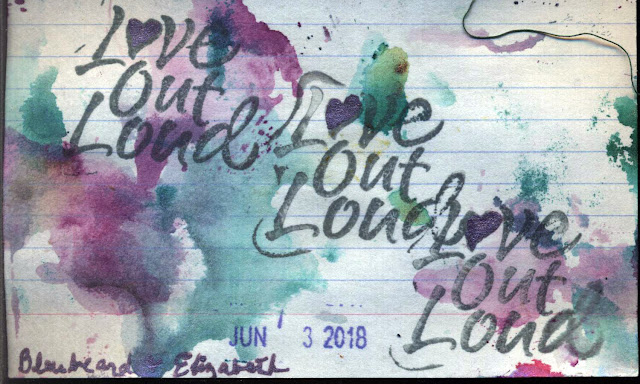 Love
Out
Loud
Love
Out
Loud
Love
Out
Loud
JUN 3 2018
Bleubeard Elizabeth